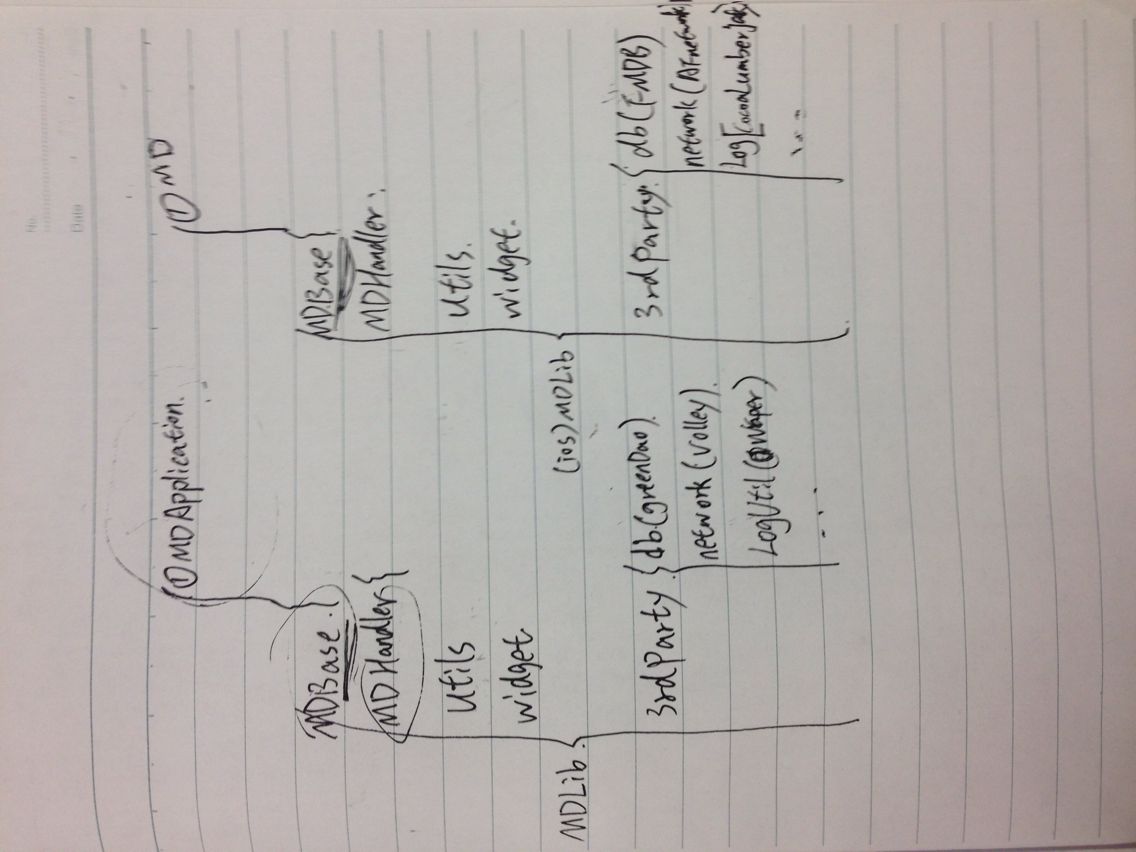 No.
Date
① MDApplication.
MDBase. {
MDHandler {
Utils
widget.
MDLib.
3rdParty { db(greenDao).
network (volley).
LogUtil(
...
① MD
MDBase {
MDHandler:
Utils.
widget.
(ios) MDLib
3rdParty. { db(FMDB)
network (AFnetwork
Log[CocoaLumberjack)
...